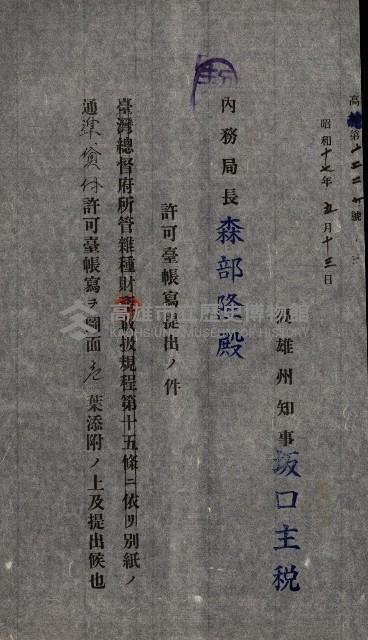 昭和十七年五月十三日
高雄州知事坂口主税
內務局長森部隆殿
許可臺帳寫提出ノ件
臺灣總督府所管雜種財產取扱規程第十五條ニ依リ別紙ノ
通 貸付許可臺帳寫ヲ圖面壱葉添附ノ上及提出候也
高雄市立歷史博物館
KAOHSIUNG MUSEUM OF HISTORY